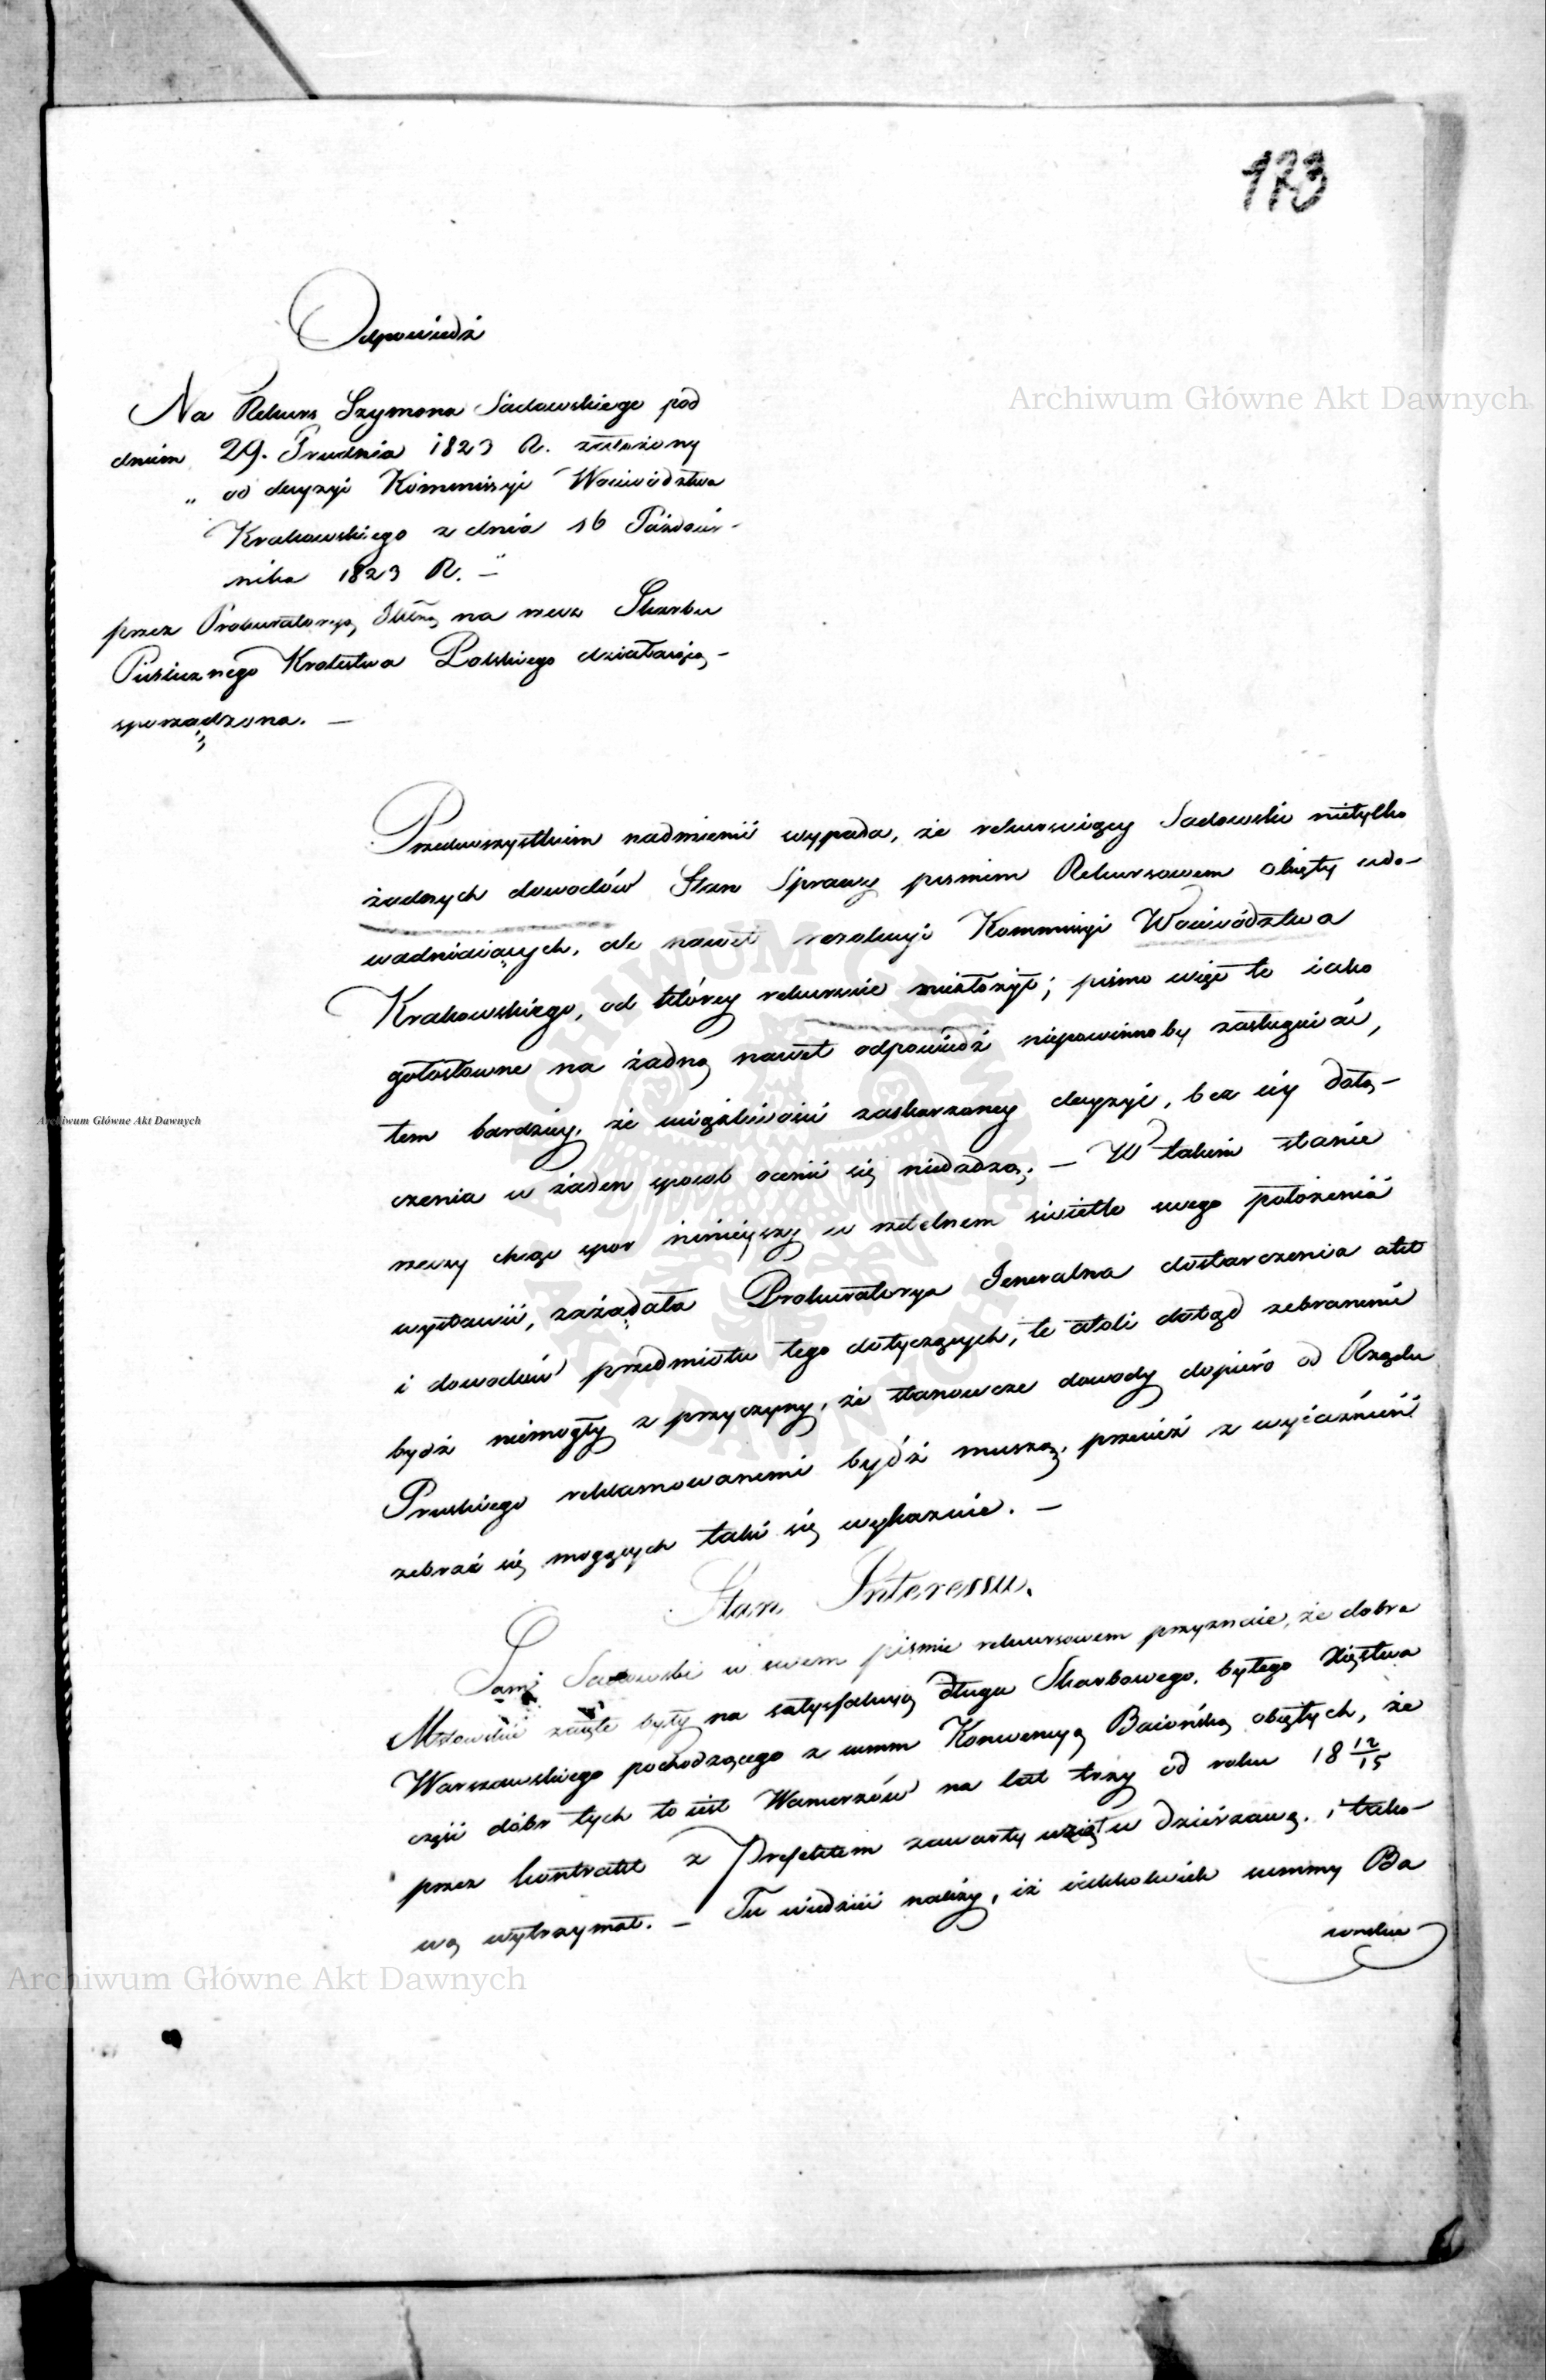 173
Odpowiedź
Na Rekurs Szymona Sadowskiego pod
dniem 29. Grudnia 1823 R. założony
„ od decyzyi Kommissyi Woiewództwa
Krakowskiego z dnia 16 Paździer-
nika 1823 R. – "
przez Prokuratoryą Jlną na rzecz Skarbu
Publicznego Krolestwa Polskiego działaiącą –
sporządzona. –
Przedewszystkiem nadmienić wypada, że rekursuiący Sadowski nietylko
żadnych dowodów Stan Sprawy pismem Rekursowem obięty udo-
wadniaiących, ale nawet rezolucyi Kommissyi Woiewództwa
Krakowskiego, od którey rekursuie niezłożył; pismo więc to iako
gołosłowne na żadną nawet odpowiedź niepowinnoby zasługiwać,
tem bardziey, że uciążliwości zaskarzoney decyzyi, bez iey dołą-
czenia w żaden sposob ocenić się niedadzą. – W takim stanie
rzeczy chcąc spor ninieyszy w rzetelnem świetle swego położenia
wystawić, zażądała Prokuratorya Jeneralna dostarczenia akt
i dowodów przedmiotu tego dotyczących, te atoli dotąd zebranemi
bydź niemogły z przyczyny, że stanowcze dowody dopiero od Rządu
Pruskiego reklamowanemi bydź muszą, przecież z wyiaśnień
zebrać się mogących taki się wykazuie. –
Stan Interessu.
Sam Sadowski w swem piśmie rekursowem przyznaie, że dobra
zaięte były na satysfakcyą długu Skarbowego, byłego Xięstwa
Warszawskiego pochodzącego z summ Konwencyą Baiońską obiętych, że
część dóbr tych to iest Wamerzów na lat trzy od roku 18 12/15
przez kontrakt z Prefektem zawarty wziął w dzierzawę, i tako-
wą wytrzymał. – Tu wiedzieć należy, iż iakkolwiek summy Ba
iońskie
Archiwum Główne Akt Dawnych
Archiwum Główne Akt Dawnych
Archiwum Główne Akt Dawnych
ARCHIWUM GŁÓWNE AKT DAWNYCH